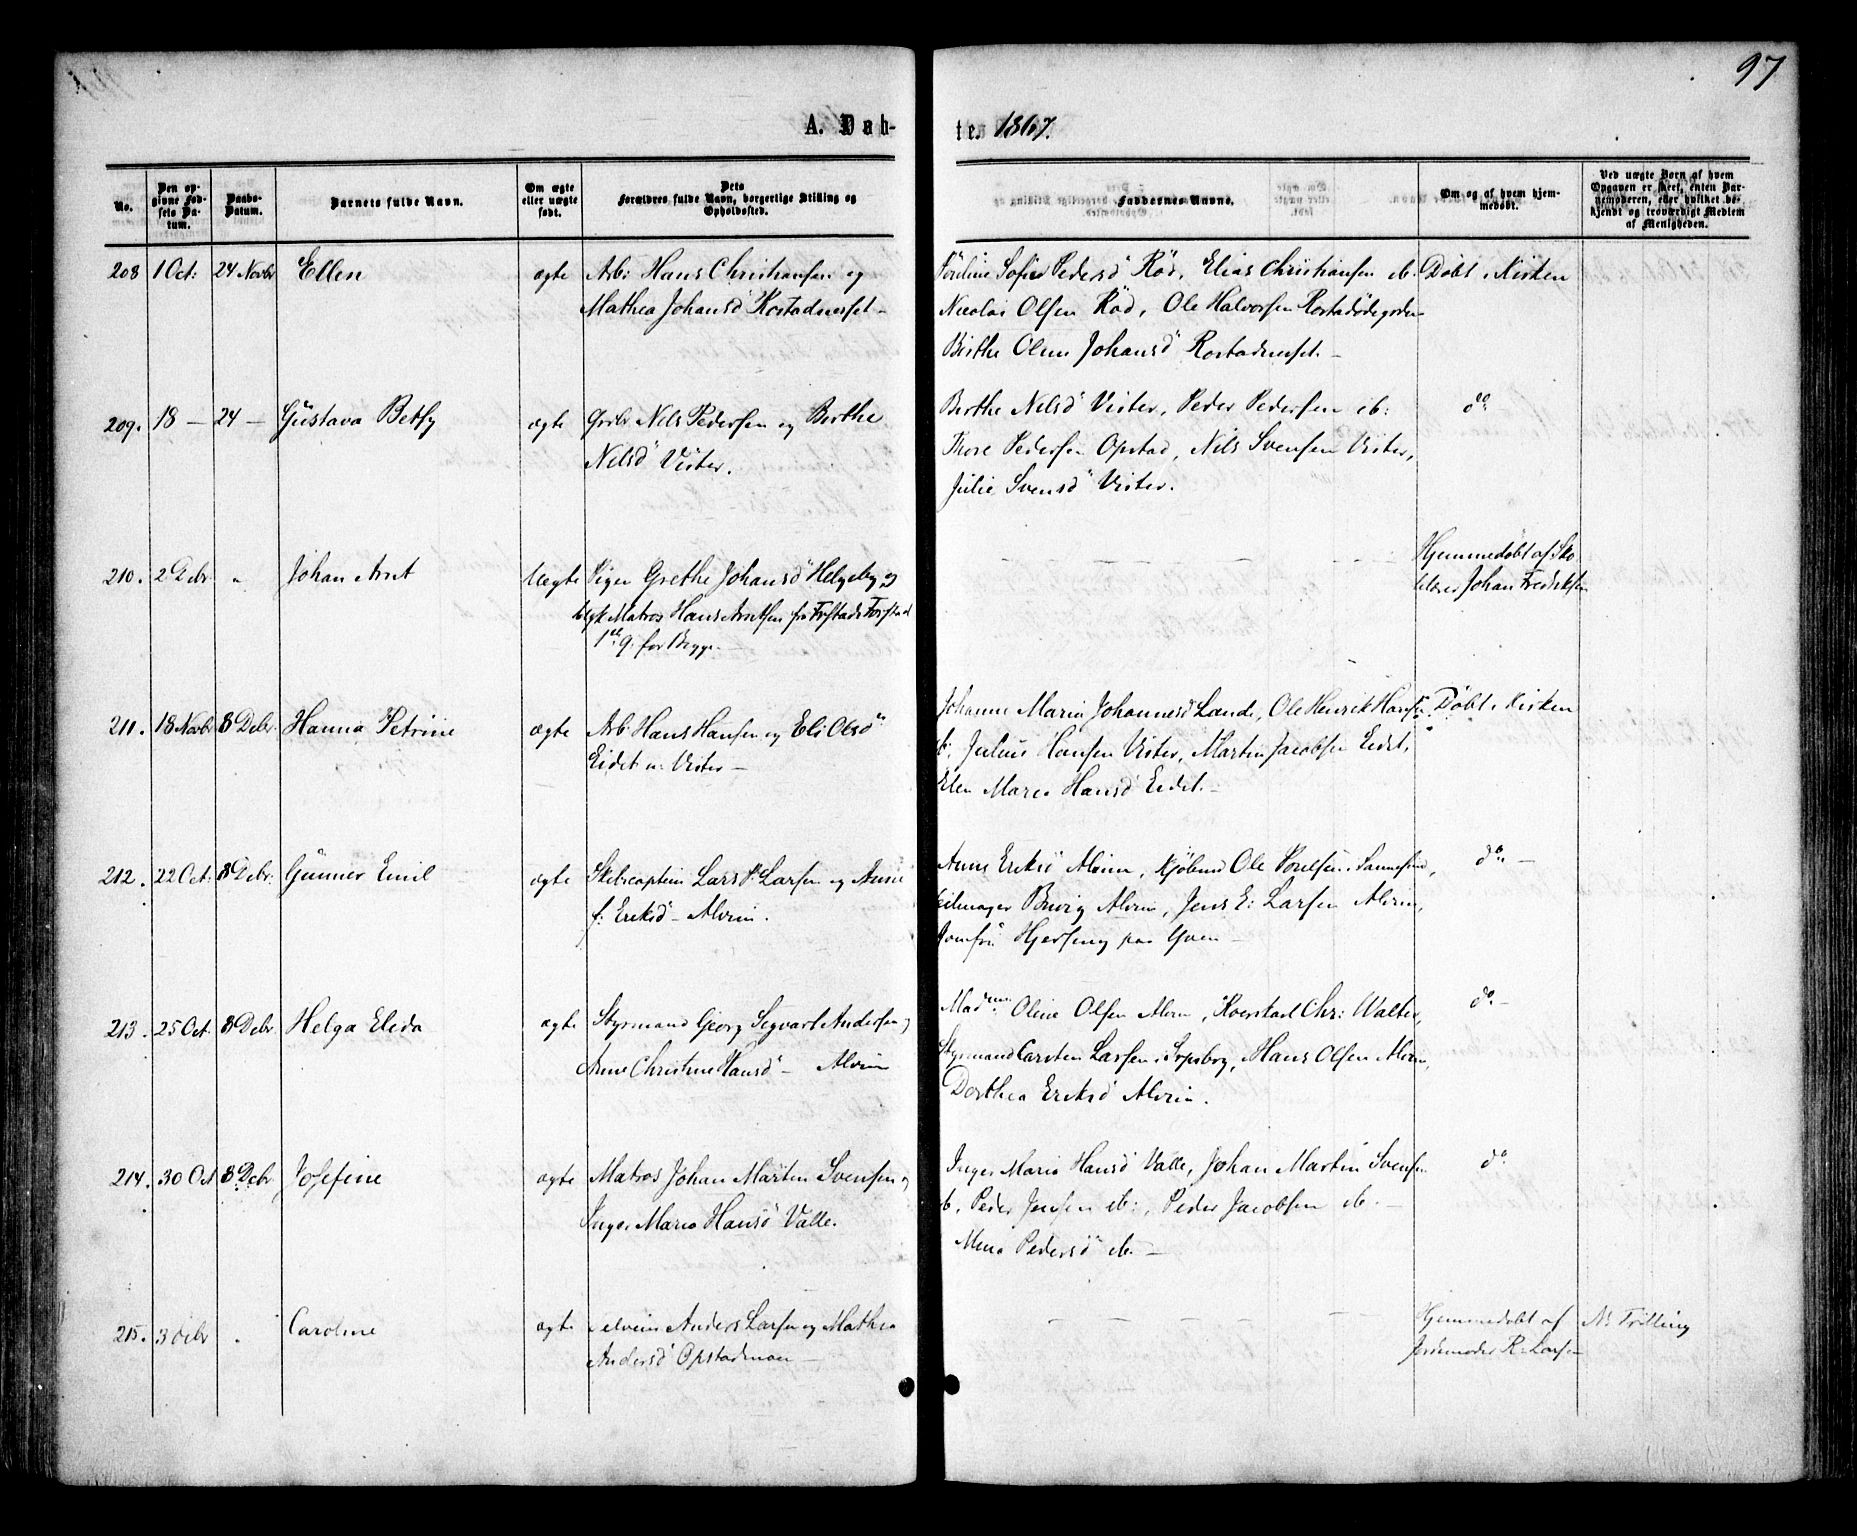 97
A. Døb-te. 1867.
No.
Den opgivne Fødsels Datum.
Daabs-Datum.
Barnets fulde Navn.
Om ægte eller uægte født.
Dets Forældres fulde Navn, borgerlige Stilling og Opholdssted.
Faddernes Navne.
Om og af hvem hjemmedøbt.
Ved uægte Børn af hvem Opgaven er skeet, enten Barnemoderen, eller hvilket bekjendt og troværdigt Medlem af Menigheden.
208 1 Oct: 24 Novbr Ellen ægte Arb: Hans Christiansen og
Mathea Johansd Rostadneset -
Sofie Pedersd Röd, Elias Christiansen ib. Döbt i Kirken
Nicolai Olsen Röd, Ole Halvorsen Rostadödegorden
Birthe Oline Johansd Rostadneset. -
209. 18 — 24 — Gustava Betsy ægte Grbr Nils Pedersen og Berthe
Nelsd Vister.
Berthe Nelsd Vister, Peder Pedersen ib: do
Thore Pedersen Opstad, Nils Svensen Vister,
Julie Svensd Vister.
210. 2 Debr " Johan Arnt Uægte Pigen Grethe Johansd Helgeby og
Ugk Matros Hans Arntsen fra Frstads Forstad
1ste g. for Begge. -
— — — —
Hjemmedöbt af Sko
lelærer Johan Fredriksen
211. 18 Novbr 8 Debr. Hanna Petrine ægte Arb. Hans Hansen og Eli Olsd
Eidet u. Vister -
Johanne Maria Johannesd Lande, Ole Henrik Hansen Döbt i Kirken
ib. Julius Hansen Vister, Martin Jacobsen Eidet,
Elen Maria Hansd Eidet. -
212. 22 Oct: 8 Debr: Gunner Emil ægte Skibscaptein Lars P. Larsen og Anne
f. Eriksd - Alvim.
Anne Eriksd Alvim, Kjöbmd Ole i Sannesund, do -
Seilmager Alvim, Jens E: Larsen Alvim,
Jomfru paa Yven -
213. 25 Oct. 8 Debr Helga Elida ægte Styrmand Georg Segvart Andersen og
Anne Christine Hansd - Alvim
Madme Oline Olsen Alvim, Chr: Walter, do -
Styrmand Carsten Larsen i Srpsborg, Hans Olsen Alvim,
Dorthea Eriksd Alvim.
214. 30 Oct 8 Debr Josefine ægte Matros Johan Martin Svensen og
Inger Maria Hansd Valle.
Inger Maria Hansd Valle, Johan Martin Svensen do
ib. Peder Jensen ib:, Peder Jacobsen ib. -
Mina Pedersd ib. -
215. 3 Debr " Caroline ægte Selveier Anders Larsen og Mathea
Andersd Opstadmoen -
— — — —
Hjemmedöbt af
Jordemoder R. Larsen
N: Tvilling